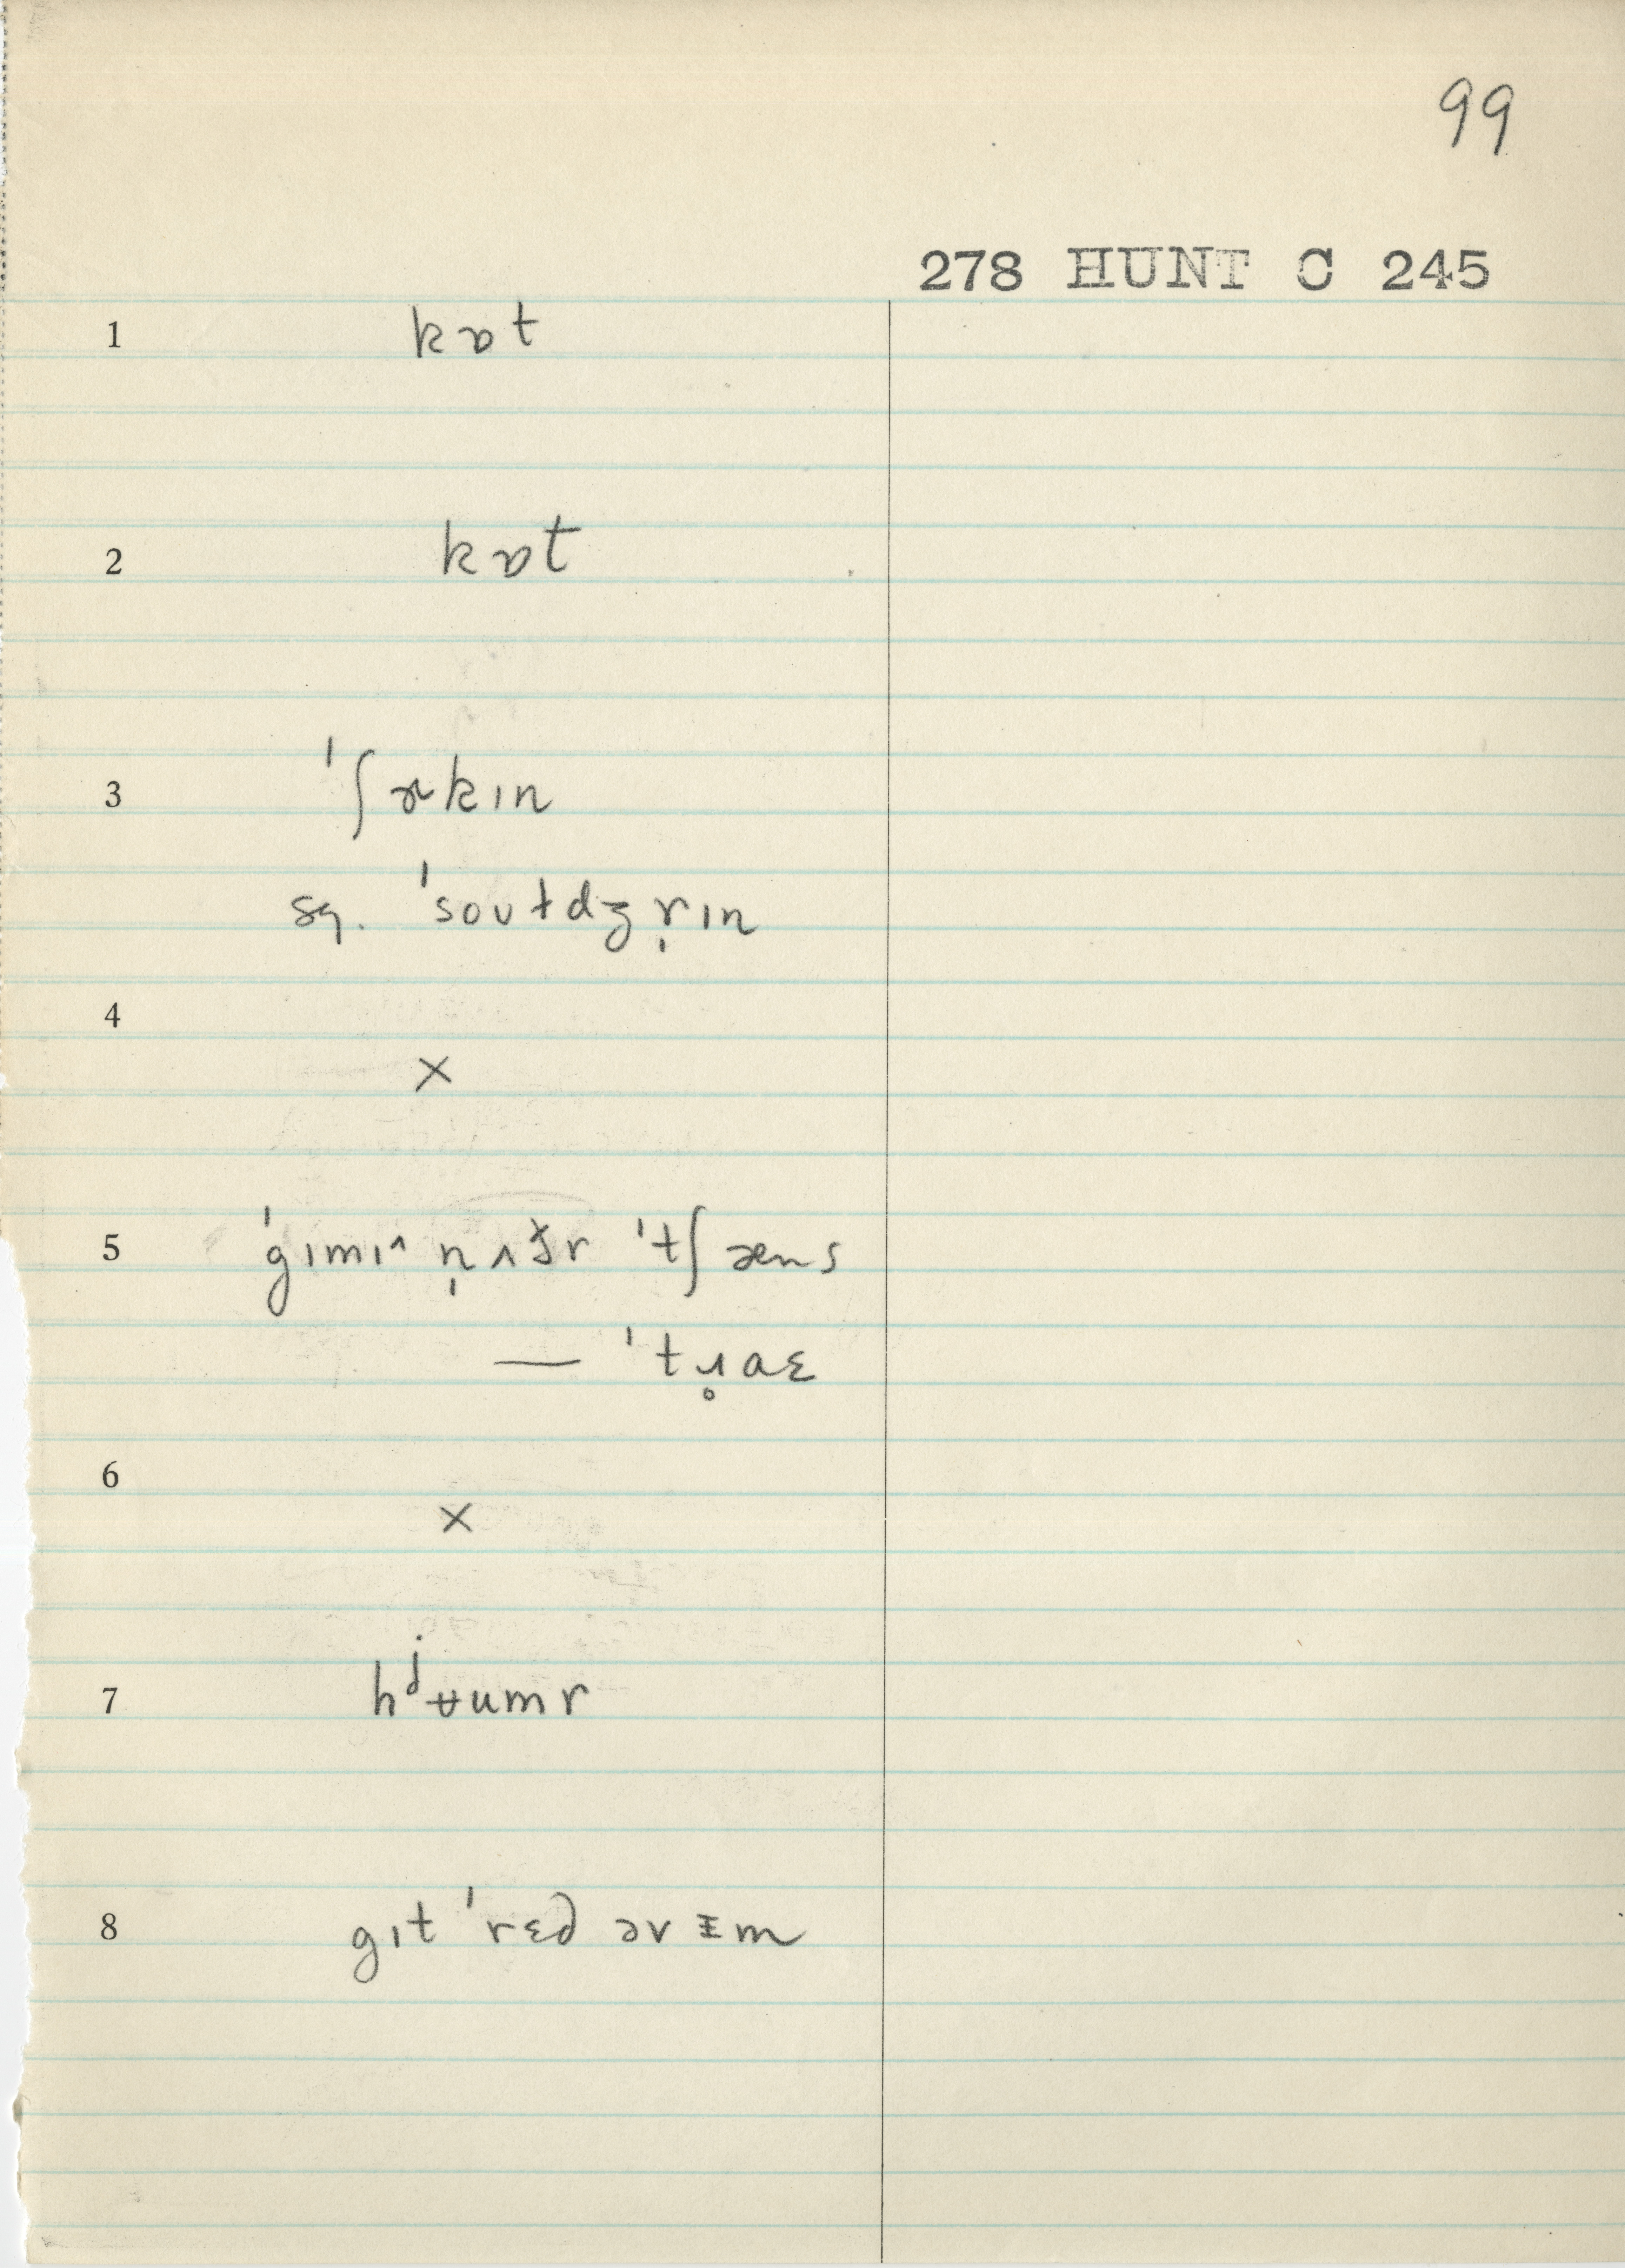 99
278 HUNT C 245
1 kɒt
2 kɒt
3 ˈʃɚkɪn
sq. ˈsoʊtdʒr̩ɪn
4
×
5 ˈgɪmɪ^ n̩ʌt̬r ˈtʃæns
— ˈtɹ̥aɛ
6
×
7 hʲʉumr
8 gɪt ˈrɛd əv ᵻm